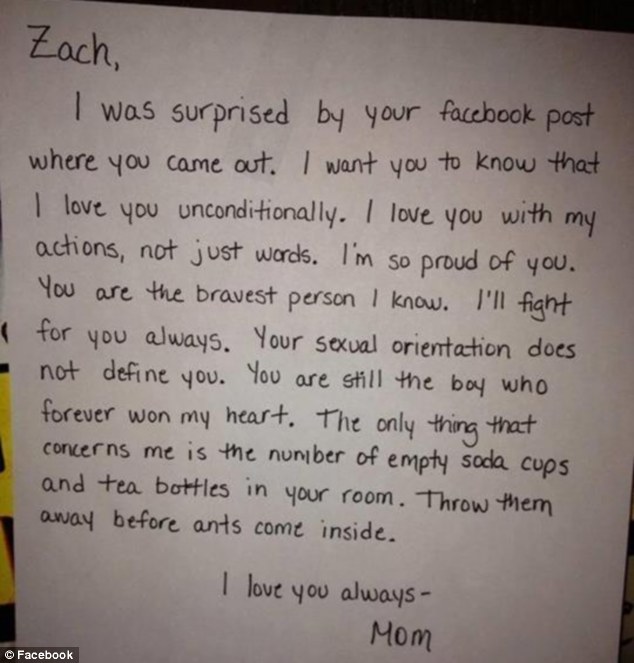 Zach,
I was surprised by your facebook post
where you came out. I want you to know that
I love you unconditionally. I love you with my
actions, not just words. I'm so proud of you.
You are the bravest person I know. I'll fight
for you always. Your sexual orientation does
not define you. You are still the boy who
forever won my heart. The only thing that
concerns me is the number of empty soda cups
and tea bottles in your room. Throw them
away before ants come inside.
I love you always-
Mom
© Facebook